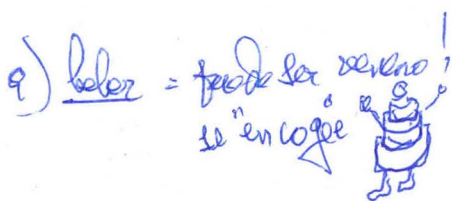 a) beber = puede ser veneno!
se "encoge"